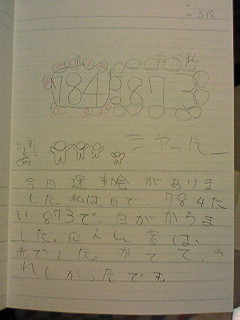 784 873
やったー
今日運動会がありま
した。私は、白で、784た
い873で、白がかちま
した。応えん賞は、
赤でした。かてて、う
れしかったです